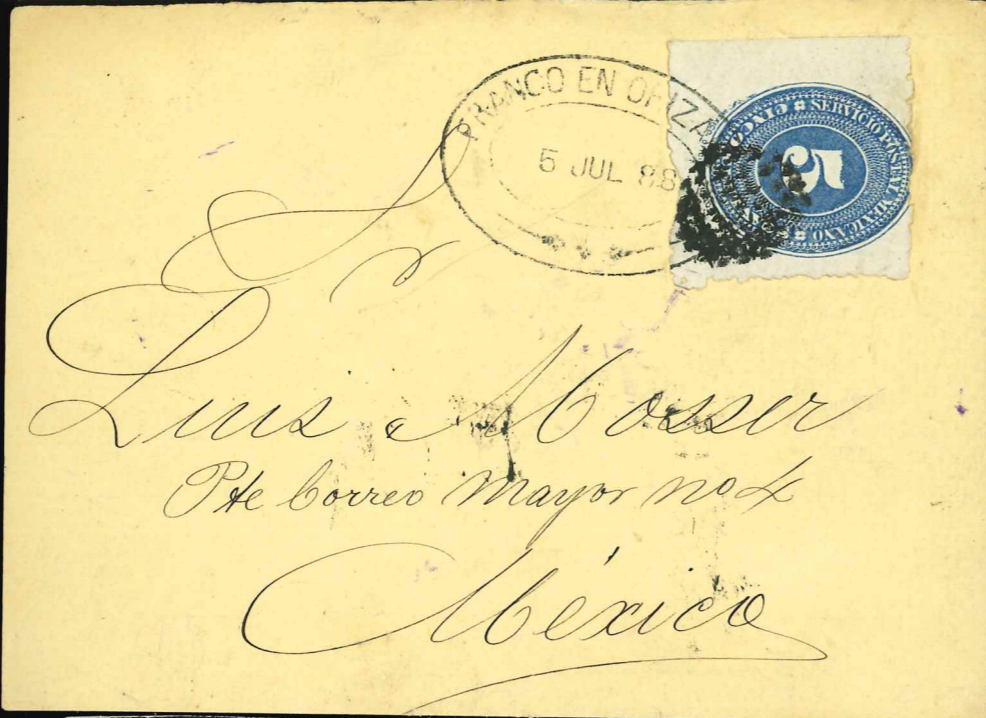 FRANCO EN ORIZA
5 JUL 88
SERVICIO POSTAL MEXICANO
CINCO
5
Sr
Luis G Mosser
Pte Correo Mayor no 4
México